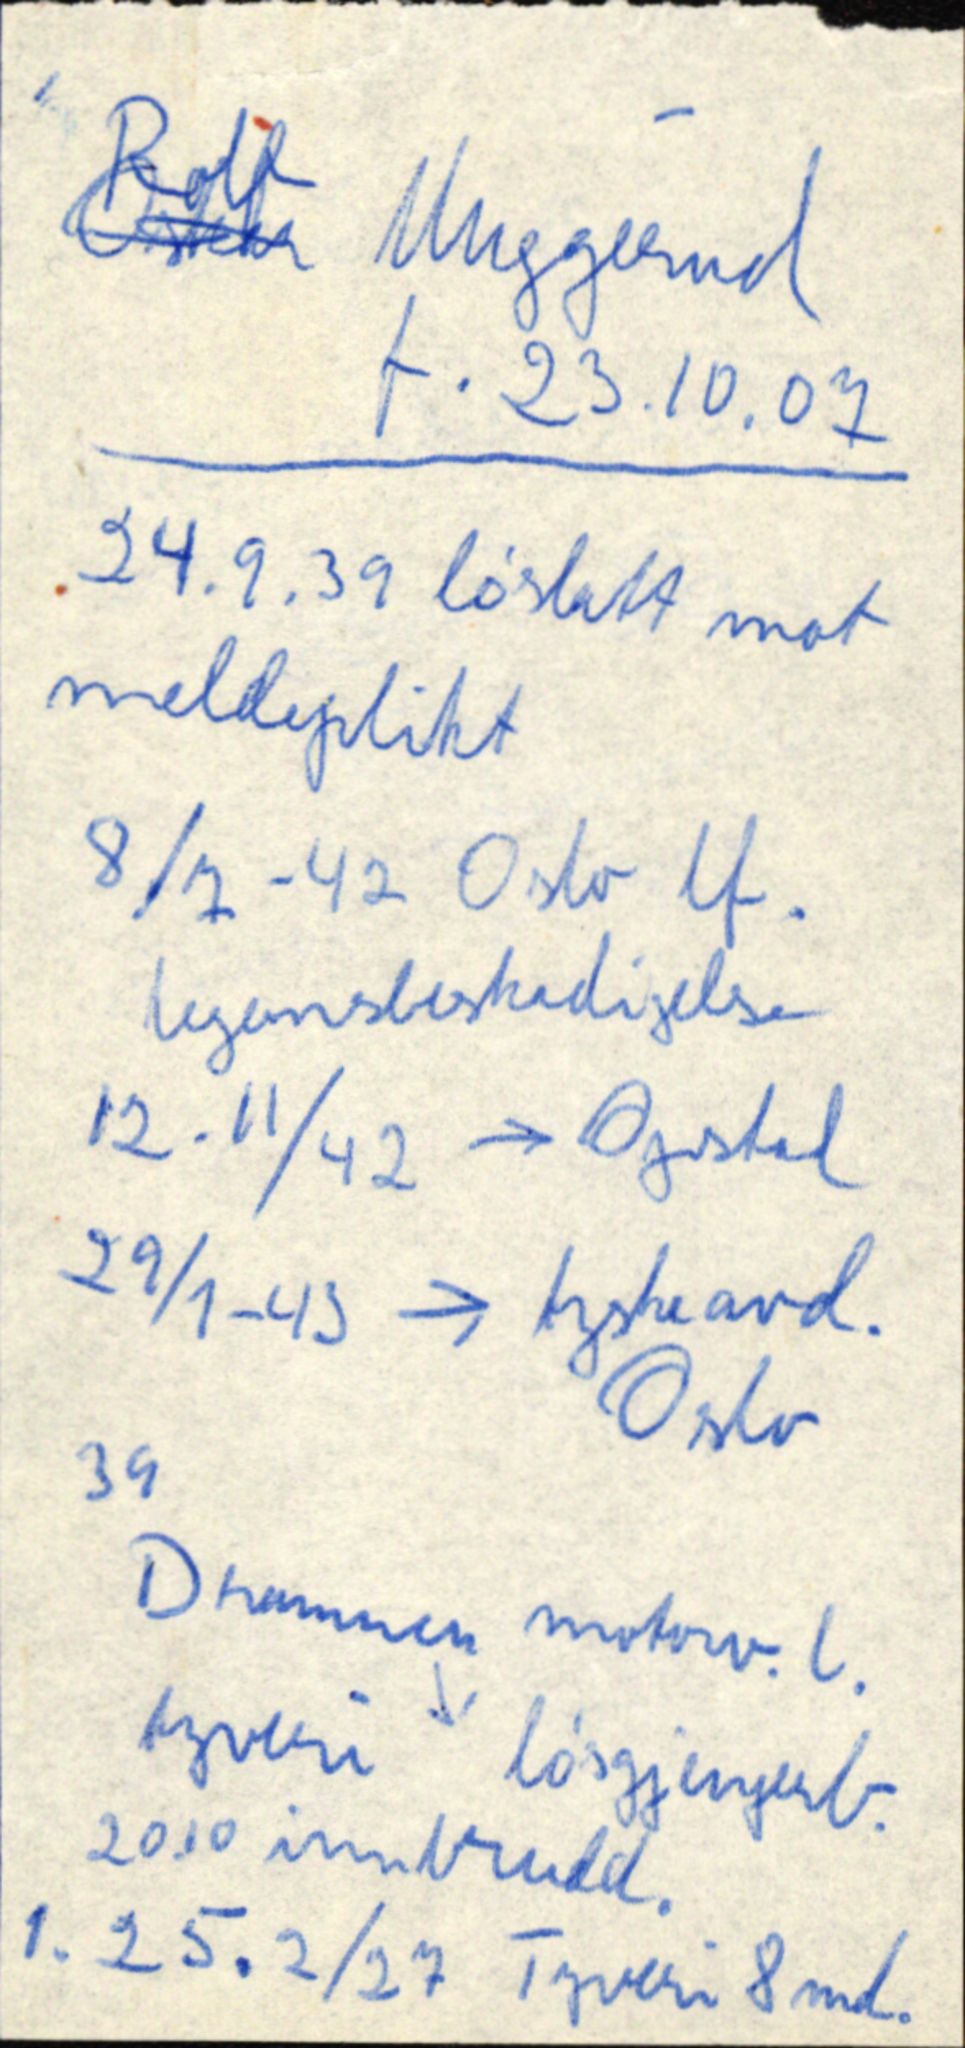 Rolf Muggerud
f. 23.10.07
24.9.39 löslatt mot
meldeplikt
8/7-42 Oslo lf.
legemsbeskadigelse
12.11/42 → Opstad
29/1-43 → tyskeavd.
Oslo
39
Drammen motorv. l.
tyveri ↓ lösgjengerb.
20.10 innbrudd.
1. 25.2/27 Tyveri 8 md.